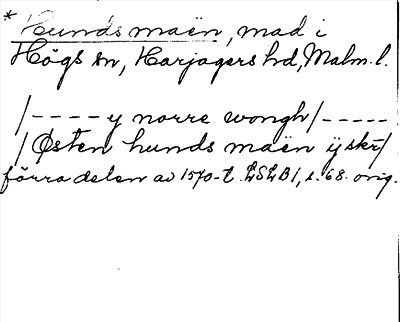 * Hundsmaen, mad i
Högs sn, Harjagers hd, Malm. l.
/---- y norre wongh/-----
/Østen hunds maen ÿ skr/
förra delen av 1570-t. LSLB1, s. 68. orig.